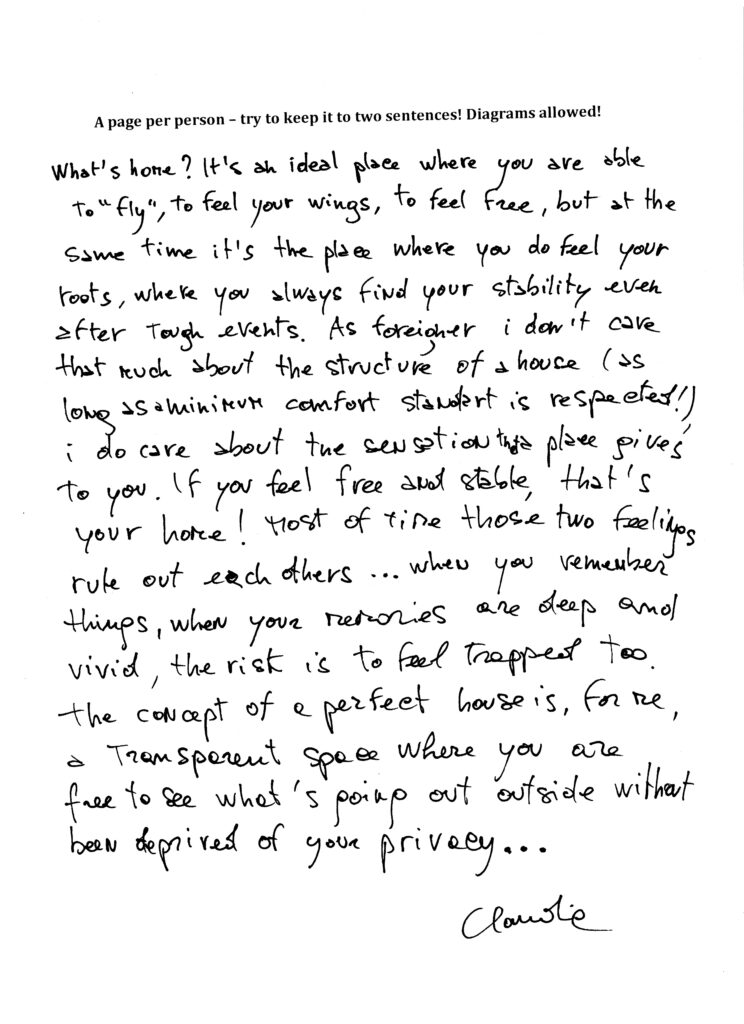 A page per person – try to keep it to two sentences! Diagrams allowed!
What's home? It's an ideal place where you are able
to "fly", to feel your wings, to feel free, but at the
same time it's the place where you do feel your
roots, where you always find your stability even
after tough events. As foreigner i don't care
that much about the structure of a house (as
long as a minimum comfort standart is respected!)
i do care about the sensation this place gives
to you. If you feel free and stable, that's
your home! Most of time those two feelings
rule out each others ... when you remember
things, when your memories are deep and
vivid, the risk is to feel trapped too.
The concept of a perfect house is, for me,
a transparent space where you are
free to see what's going out outside without
been deprived of your privacy...